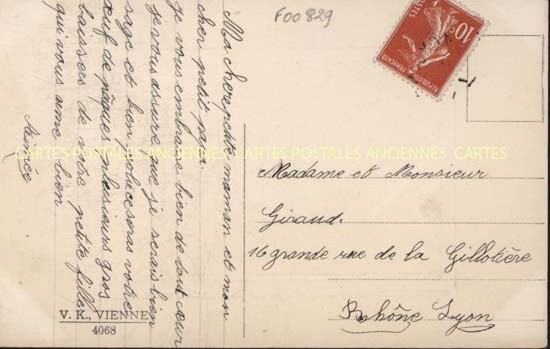 F00829
Ma chere petite maman et mon
cher petit papa.
je vous embrasse bien de tout cœur
je vous assure que je serais bien
sage et bien vous
œuf de pâques plusieurs gros
baissers de votre petite fille
qui vous aime bien
10c
POSTES
REPUBLIQUE FRANÇAISE
CARTES POSTALES ANCIENNES CARTES POSTALES ANCIENNES CARTES
Madame et Monsieur
Giraud.
16 grande rue de la Gillotière
Rhône Lyon
V. K., VIENNE
4068